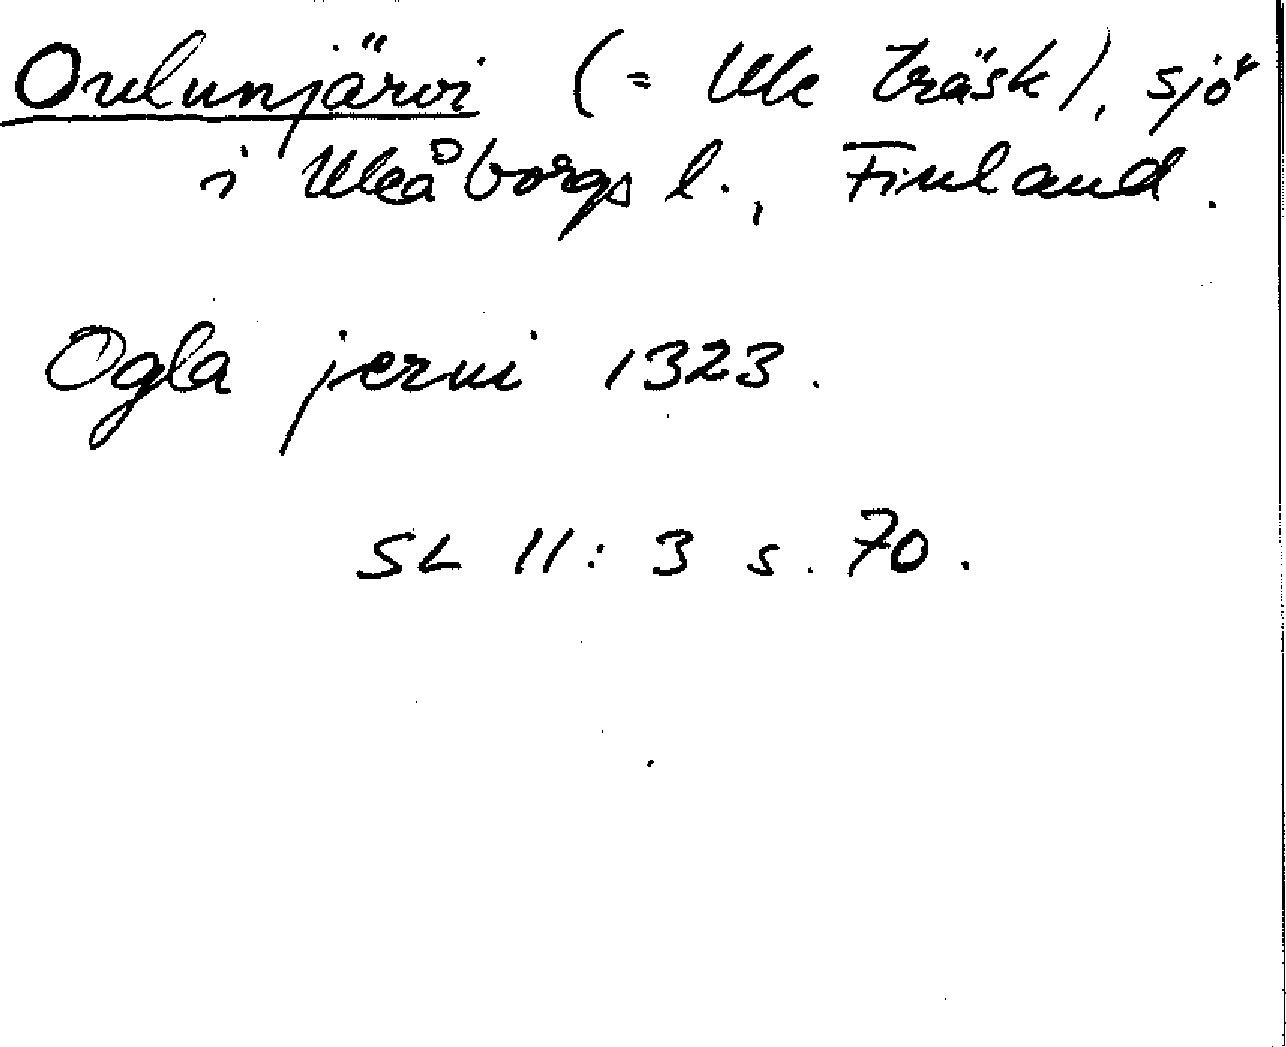 Oulunjärvi (= Ule träsk), sjö
i Uleåborgs l., Finland.
Ogla jerui 1323.
SL 11: 3 s. 70.